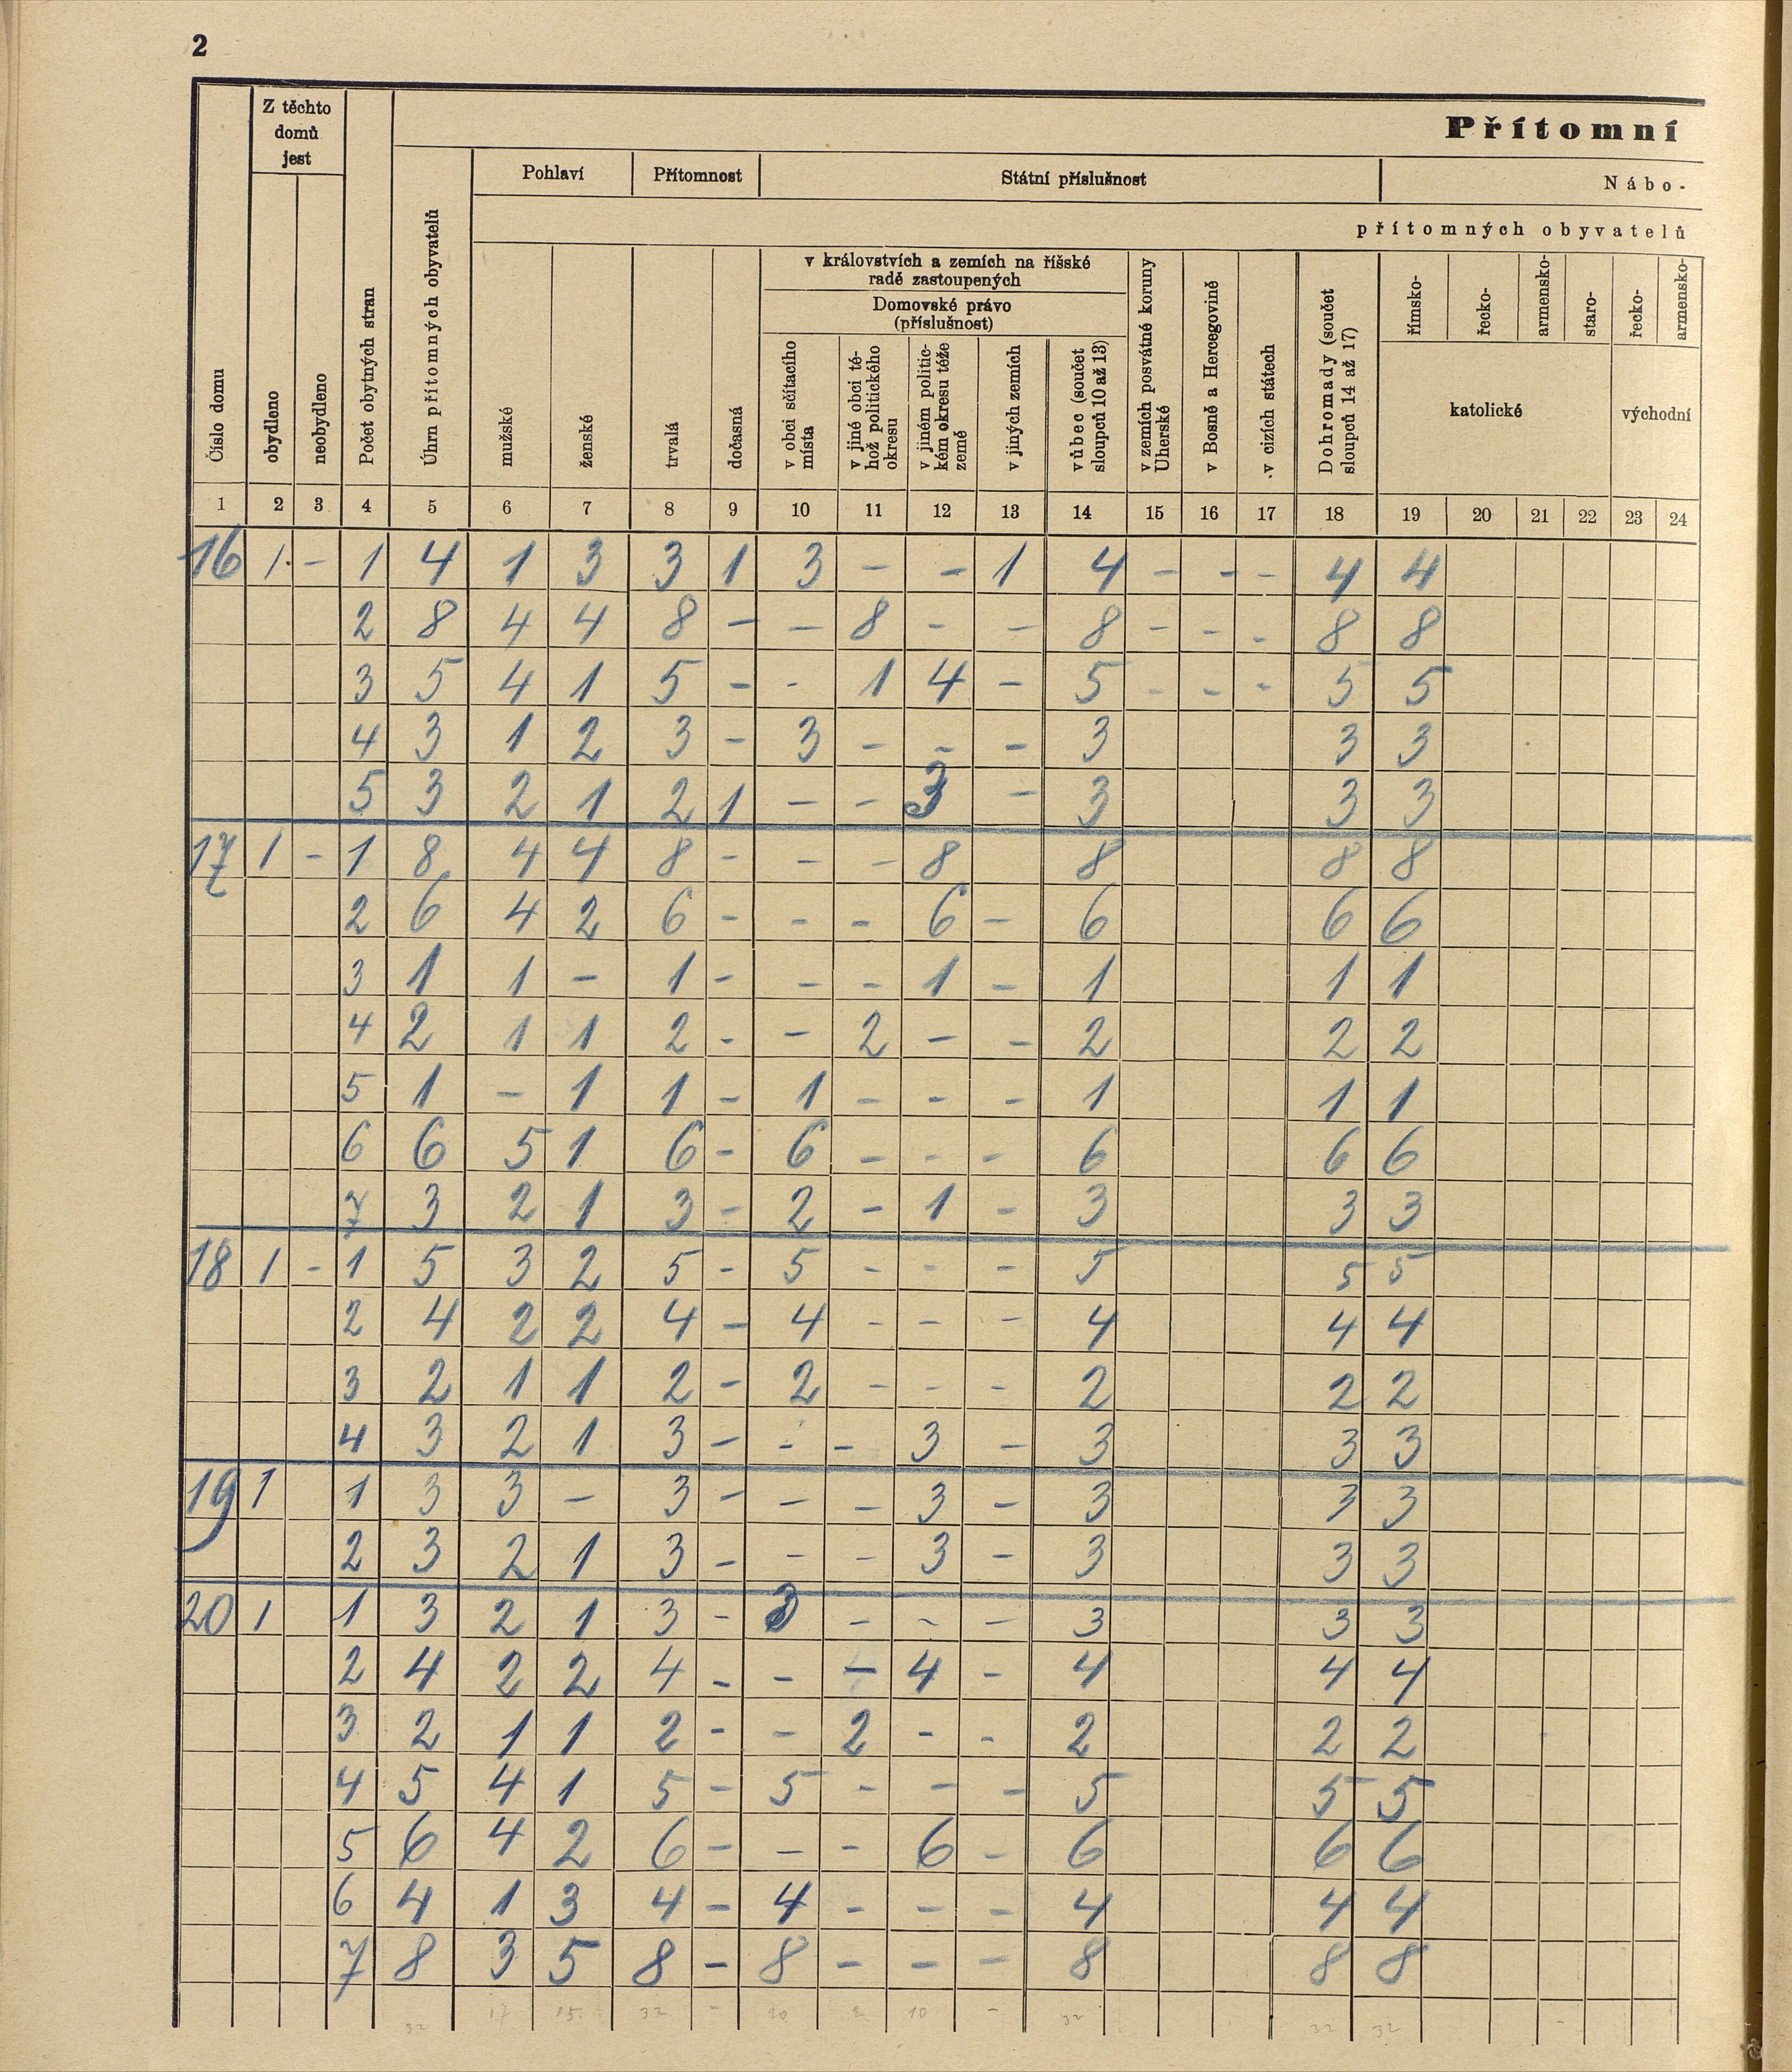 2
Přítomní
Z těchto domů jest
Pohlaví
Přítomnost
Státní příslušnost
Nábo-
přítomných obyvatelů
Číslo domu
obydleno
neobydleno
Počet obytných stran
Úhrn přítomných obyvatelů
mužské
ženské
trvalá
dočasná
v královstvích a zemích na říšské radě zastoupených
Domovské právo (příslušnost)
v obci sčítacího místa
v jiné obci téhož politického okresu
v jiném politickém okresu téže země
v jiných zemích
vůbec (součet sloupců 10 až 13)
v zemích posvátné koruny Uherské
v Bosně a Hercegovině
v cizích státech
Dohromady (součet sloupců 14 až 17)
římsko-
řecko-
armensko-
staro-
řecko-
armensko-
katolické
východní
1 2 3 4 5 6 7 8 9 10 11 12 13 14 15 16 17 18 19 20 21 22 23 24
16 1 - 1 4 1 3 3 1 3 - - 1 4 - - - 4 4
2 8 4 4 8 - - 8 - - 8 - - - 8 8
3 5 4 1 5 - - 1 4 - 5 - - - 5 5
4 3 1 2 3 - 3 - - - 3 3 3
5 3 2 1 2 1 - - 3 - 3 3 3
17 1 - 1 8 4 4 8 - - - 8 8 8 8
2 6 4 2 6 - - - 6 - 6 6 6
3 1 1 - 1 - - - 1 - 1 1 1
4 2 1 1 2 - - 2 - - 2 2 2
5 1 - 1 1 - 1 - - - 1 1 1
6 6 5 1 6 - 6 - - - 6 6 6
7 3 2 1 3 - 2 - 1 - 3 3 3
18 1 - 1 5 3 2 5 - 5 - - - 5 5 5
2 4 2 2 4 - 4 - - - 4 4 4
3 2 1 1 2 - 2 - - - 2 2 2
4 3 2 1 3 - - - 3 - 3 3 3
19 1 1 3 3 - 3 - - - 3 - 3 3 3
2 3 2 1 3 - - - 3 - 3 3 3
20 1 1 3 2 1 3 - 3 - - - 3 3 3
2 4 2 2 4 - - - 4 - 4 4 4
3 2 1 1 2 - - 2 - - 2 2 2
4 5 4 1 5 - 5 - - - 5 5 5
5 6 4 2 6 - - - 6 - 6 6 6
6 4 1 3 4 - 4 - - - 4 4 4
7 8 3 5 8 - 8 - - - 8 8 8
32 17 15 32 - 20 2 10 - 32 32 32